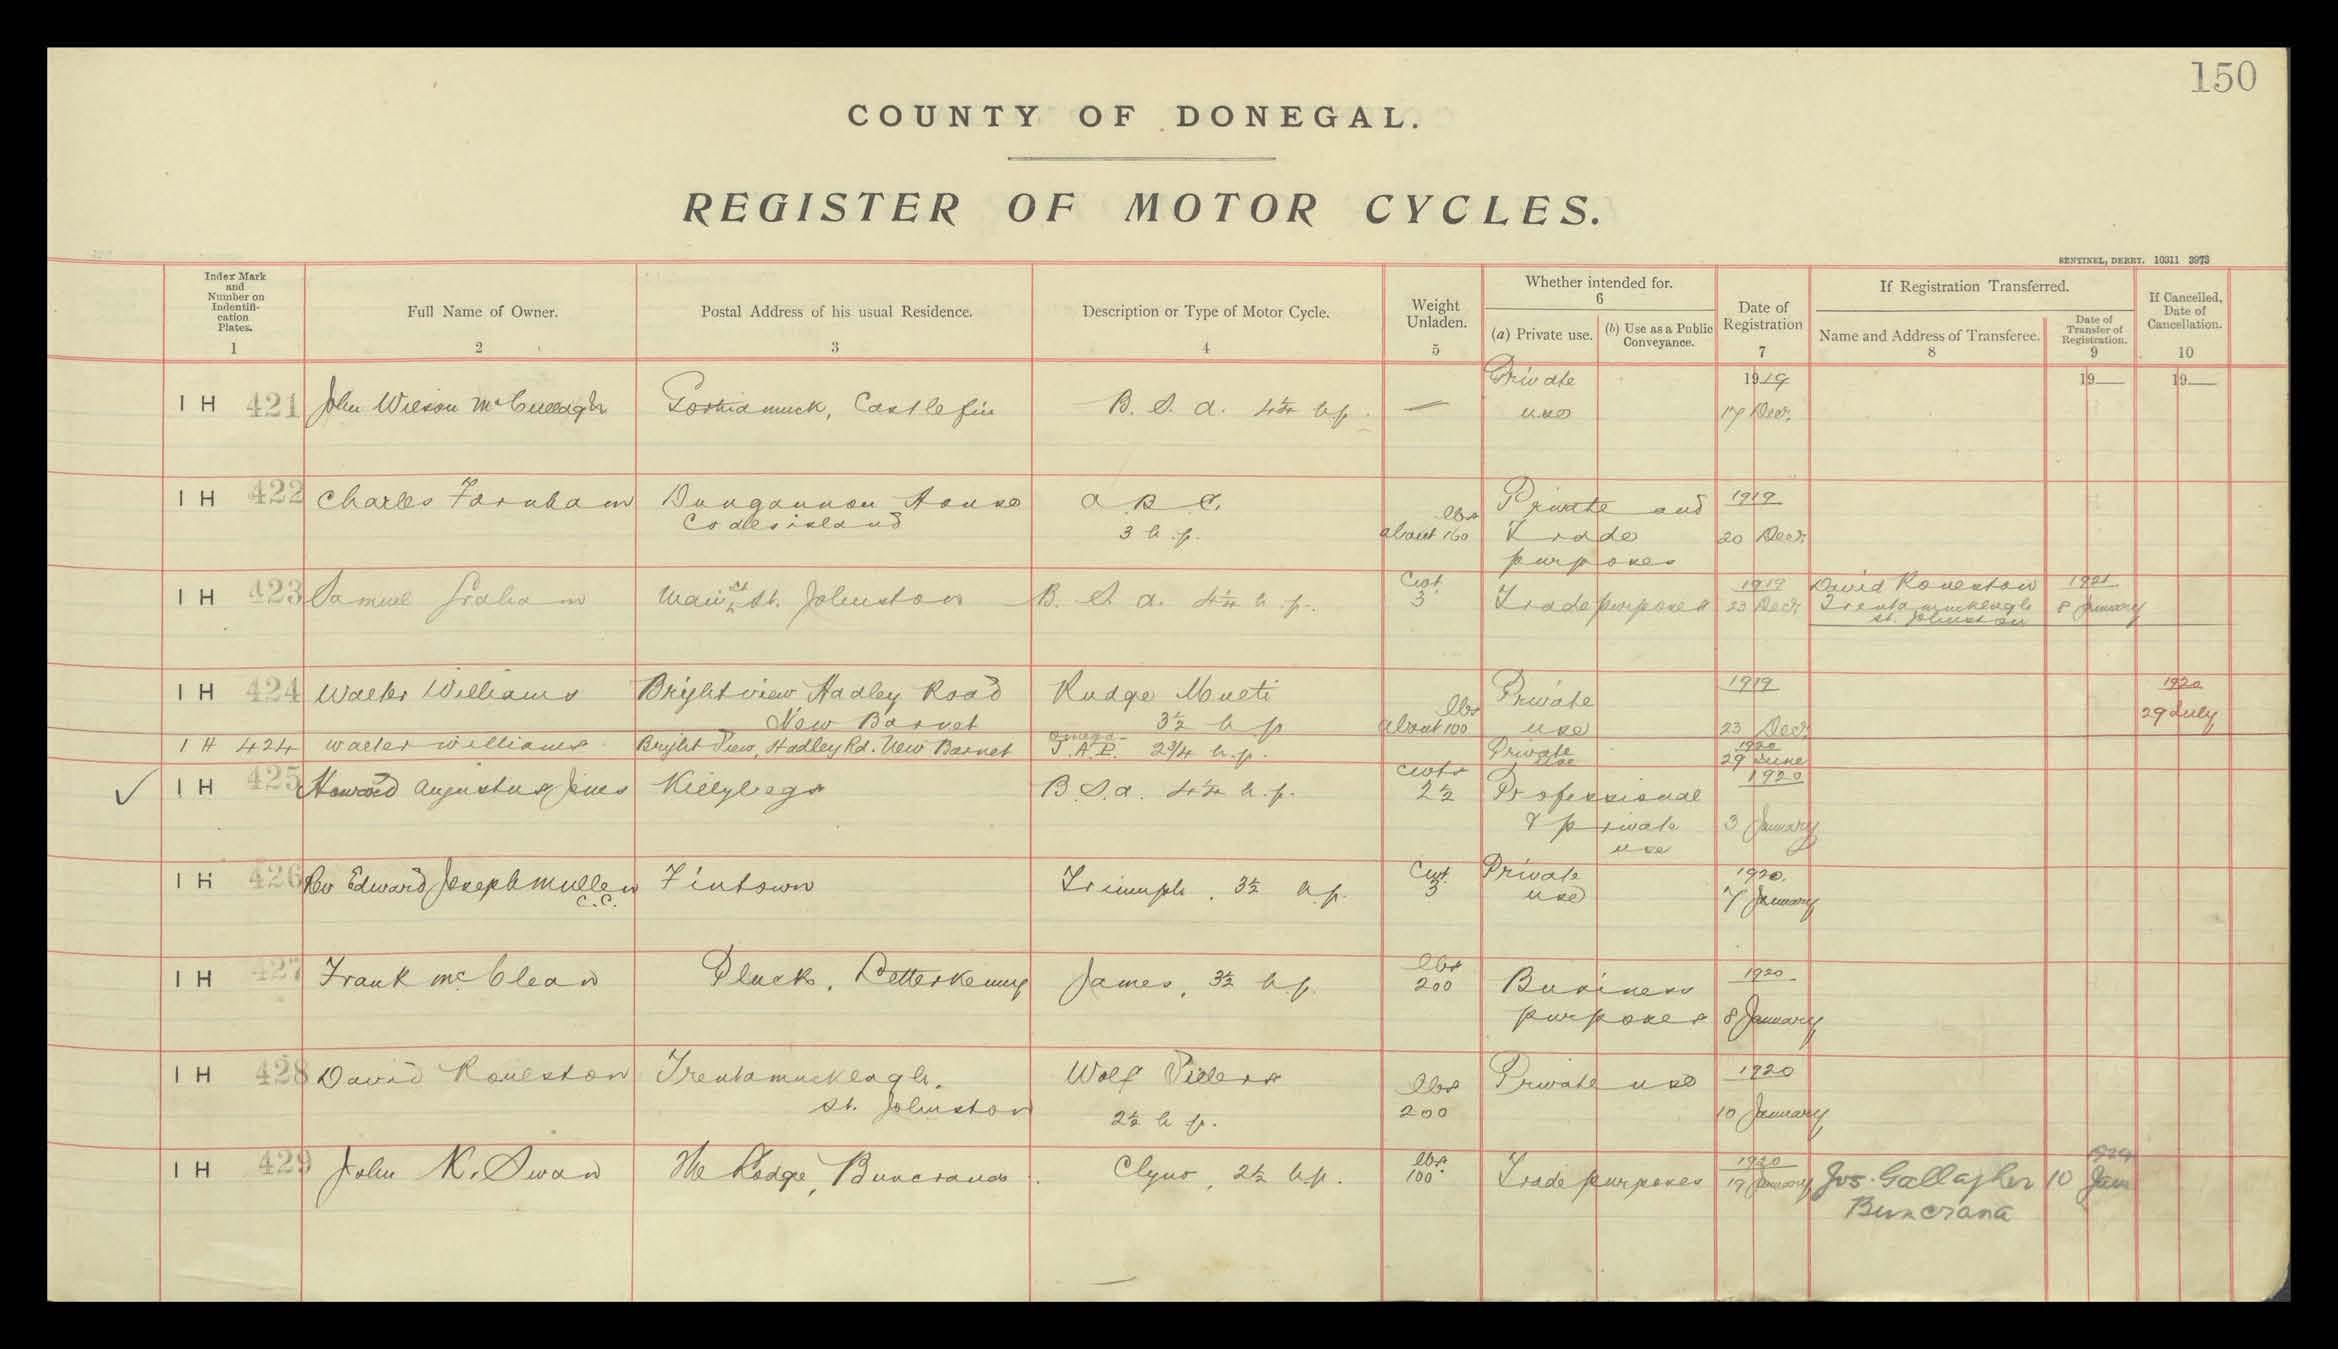 150
COUNTY OF DONEGAL.
REGISTER OF MOTOR CYCLES.
SENTINEL, DERRY. 10311 3973
Index Mark and Number on Indentifi- cation Plates. 1
Full Name of Owner. 2
Postal Address of his usual Residence. 3
Description or Type of Motor Cycle. 4
Weight Unladen. 5
Whether intended for. 6
(a) Private use.
(b) Use as a Public Conveyance.
Date of Registration 7
If Registration Transferred.
Name and Address of Transferee. 8
Date of Transfer of Registration. 9
If Cancelled, Date of Cancellation. 10
Private 1919 19 19
IH 421 John Wilson McCullagh Castlefin B. S. A. 4¼ h.p. — use 17 Decr.
IH 422 Charles Farnham Dungannon House A B C. lbs Private and 1919
Coalisland 3 h.p. about 160 Trade 20 Decr.
purposes
IH 423 Samuel Graham Main St, St. Johnston B. S. A. 4¼ h.p. Cwt. 3 Trade purposes 1919 23 Decr David Rouleston 1921
Trentamucklagh 8 January
St. Johnston
IH 424 Walter Williams Brightview Hadley Road Rudge Multi lbs Private 1919 1920
New Barnet 3½ h p about 100 use 23 Decr 29 July
IH 424 Walter Williams Bright View, Hadley Rd. New Barnet Omega- J.A.P. 2¾ h.p. Private use 1920 29 June
IH 425 Howard Augustus Jones Killybegs B.S.A. 4¼ h.p. cwts 2½ Professional 1920
& private 3 January
use
IH 426 Rev Edward Joseph Mullen C.C. Fintown Triumph. 3½ h.p. Cwt. 3 Private use 1920. 7 January
IH 427 Frank McClean Pluck, Letterkenny James, 3½ h.p. lbs 200 Business 1920
purposes 8 January
IH 428 David Rouleston Trentamucklagh. Wolf Villers lbs Private use 1920
St. Johnston 2½ h p. 200 10 January
IH 429 John K. Swan The Lodge, Buncrana. Clyno, 2½ h.p. lbs. 100 Trade purposes 1920 19 January Jos. Gallagher 10 Jan
Buncrana